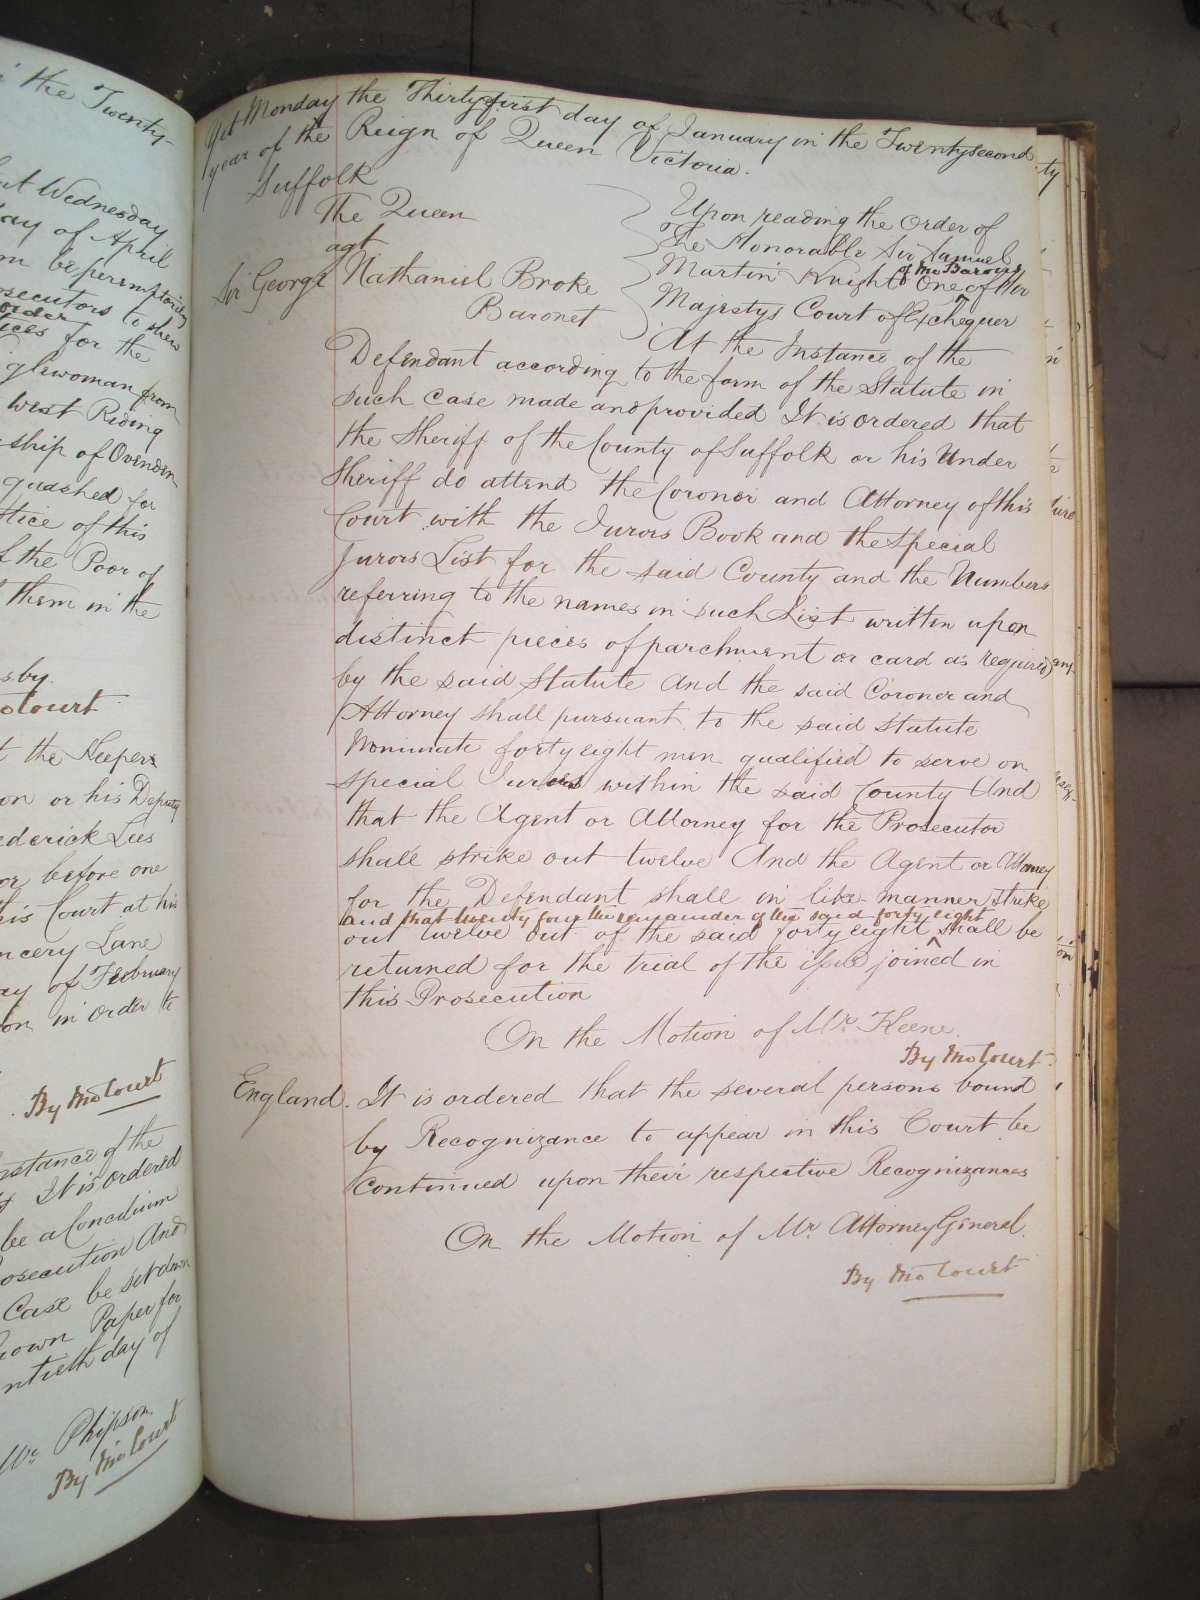 in the Twenty-
Wednesday
day of April
be peremptorily
prosecutors to shew
order
for the
glewoman from
West Riding
ship of Ovenden
quashed for
this
the Poor of
them in the
By the Court
the Keeper
or his Deputy
Frederick Lees
or before one
his Court at his
Chancery Lane
day of February
in order to
By the Court
Instance of the
It is ordered
be a Concilium
prosecution And
Case be set down
Crown Paper for
day of
Mr Phipson
By the Court
Yet Monday the Thirty first day of January in the Twenty second
year of the Reign of Queen Victoria.
Suffolk
The Queen
agt
Sir George Nathaniel Broke
Baronet
Upon reading the Order of
The Honorable Sir Samuel
Martin Knight One of the Barons of Her
Majestys Court of Exchequer
At the Instance of the
Defendant according to the form of the Statute in
such case made and provided It is ordered that
the Sheriff of the County of Suffolk or his Under
Sheriff do attend the Coroner and Attorney of this
Court with the Jurors Book and the Special
Jurors List for the said County and the Numbers
referring to the names in such List written upon
distinct pieces of parchment or card as required
by the said Statute And the said Coroner and
Attorney shall pursuant to the said Statute
Nominate forty eight men qualified to serve on
special Juries within the said County And
that the Agent or Attorney for the Prosecutor
shall strike out twelve And the Agent or Attorney
for the Defendant shall in like manner strike
and that twenty four the remainder of the said forty eight
out twelve out of the said forty eight shall be
returned for the trial of the issue joined in
this Prosecution
On the Motion of Mr. Keene.
By the Court.
England. It is ordered that the several persons bound
by Recognizance to appear in this Court be
Continued upon their respective Recognizances
On the Motion of Mr. Attorney General.
By the Court